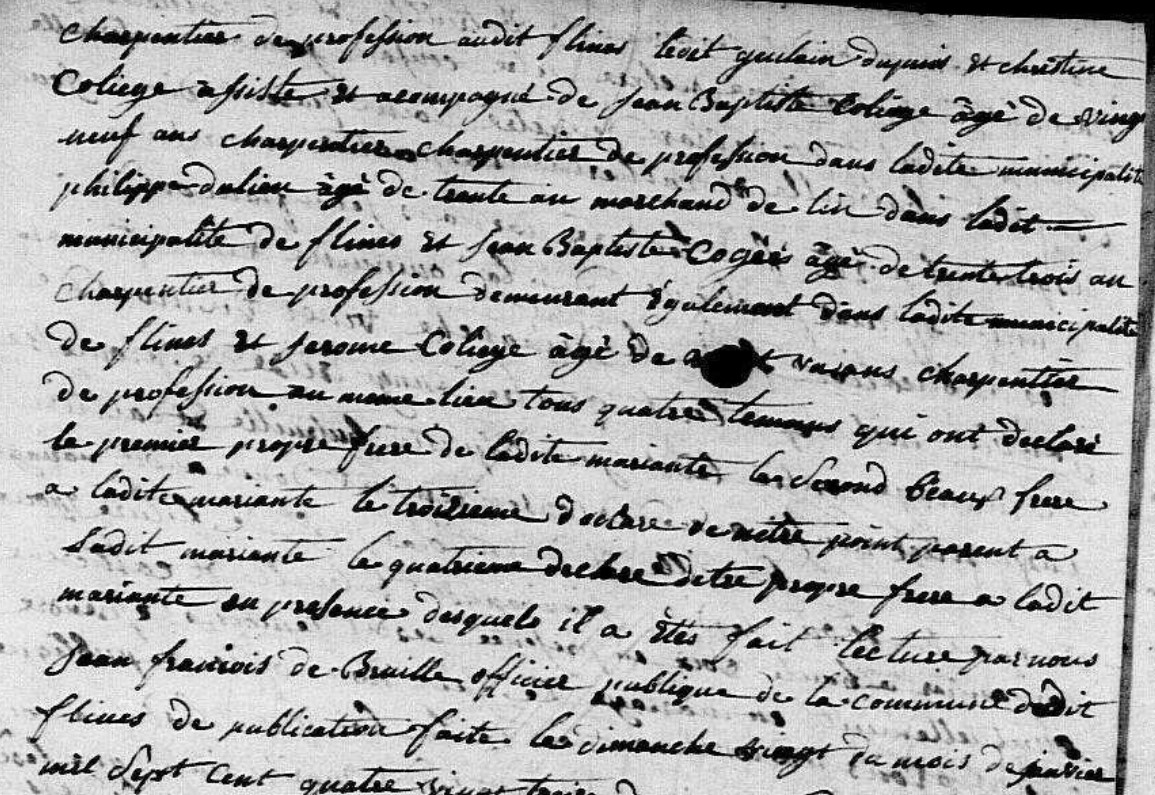 charpentier de profession audit flines ledit guilain dupuis et christine
Coliege assisté et acompagné de jean Baptiste Coliege âgé de vingt
neuf ans charpentier charpentier de profession dans ladite municipalité
philippe dulieu âgé de trente an marchand de lin dans ladit
municipalité de flines et jean Baptiste Cogez âgé de trente trois an
charpentier de profession demeurant également dans ladite municipalité
de flines et jerome Coliege âgé de ans charpentier
de profession au meme lieu tous quatre temoins qui ont declaré
le premier propre frere de ladite mariante le second beaux frere
a ladite mariante le troisieme declare de nètre point parent a
Ladit mariante le quatrieme declaré detre propre frere a ladit
mariante en presence desquels il a étés fait lecture par nous
jean francois de Bruille officier publique de la commune dudit
flines de publication faite le dimanche vingt du mois de janvier
mil Sept Cent quatre vingt treize